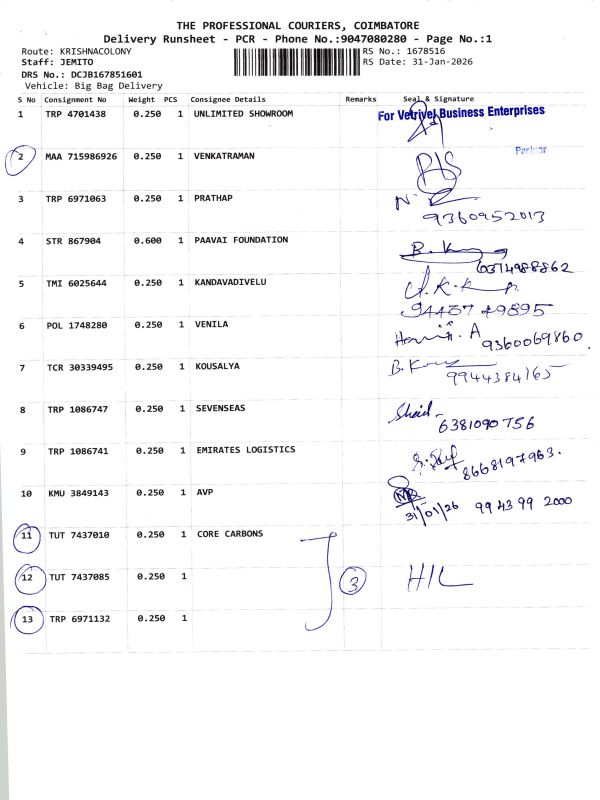 THE PROFESSIONAL COURIERS, COIMBATORE
Delivery Runsheet - PCR - Phone No.:9047080280 - Page No.:1
Route: KRISHNACOLONY RS No.: 1678516
Staff: JEMITO RS Date: 31-Jan-2026
DRS No.: DCJB167851601
Vehicle: Big Bag Delivery
S No Consignment No Weight PCS Consignee Details Remarks Seal & Signature
1 TRP 4701438 0.250 1 UNLIMITED SHOWROOM For Vetrivel Business Enterprises
Partner
2 MAA 715986926 0.250 1 VENKATRAMAN
3 TRP 6971063 0.250 1 PRATHAP
9360952013
4 STR 867904 0.600 1 PAAVAI FOUNDATION
6374988862
5 TMI 6025644 0.250 1 KANDAVADIVELU
94437 49895
6 POL 1748280 0.250 1 VENILA
9360069860.
7 TCR 30339495 0.250 1 KOUSALYA
9944384165
8 TRP 1086747 0.250 1 SEVENSEAS
6381090756
9 TRP 1086741 0.250 1 EMIRATES LOGISTICS
8668197963.
10 KMU 3849143 0.250 1 AVP
31/01/26 99 43 99 2000
11 TUT 7437010 0.250 1 CORE CARBONS
12 TUT 7437085 0.250 1 3 H/L
13 TRP 6971132 0.250 1